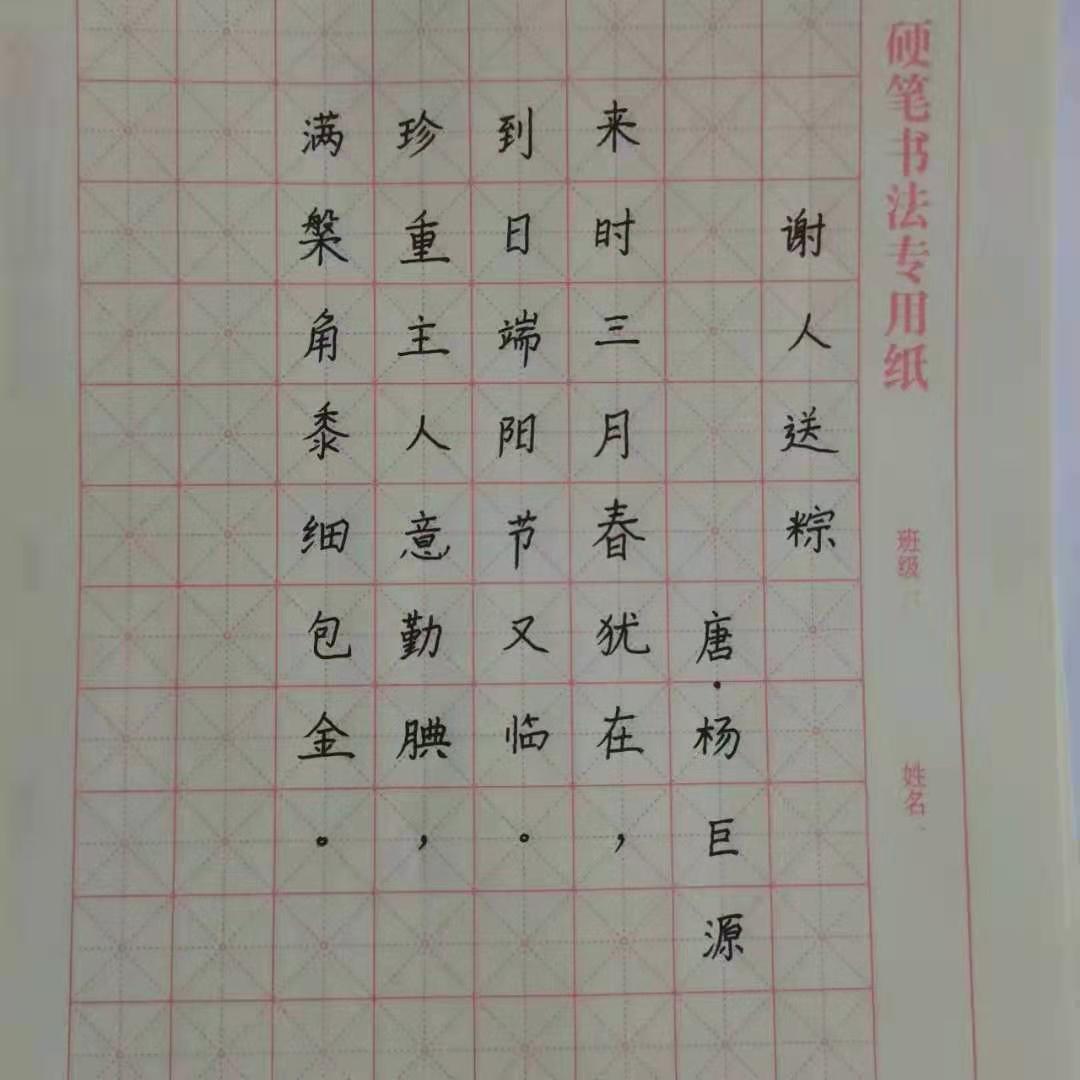 硬笔书法专用纸
班级
姓名
谢人送粽
唐·杨巨源
来时三月春犹在，
到日端阳节又临。
珍重主人意勤腆，
满槃角黍细包金。